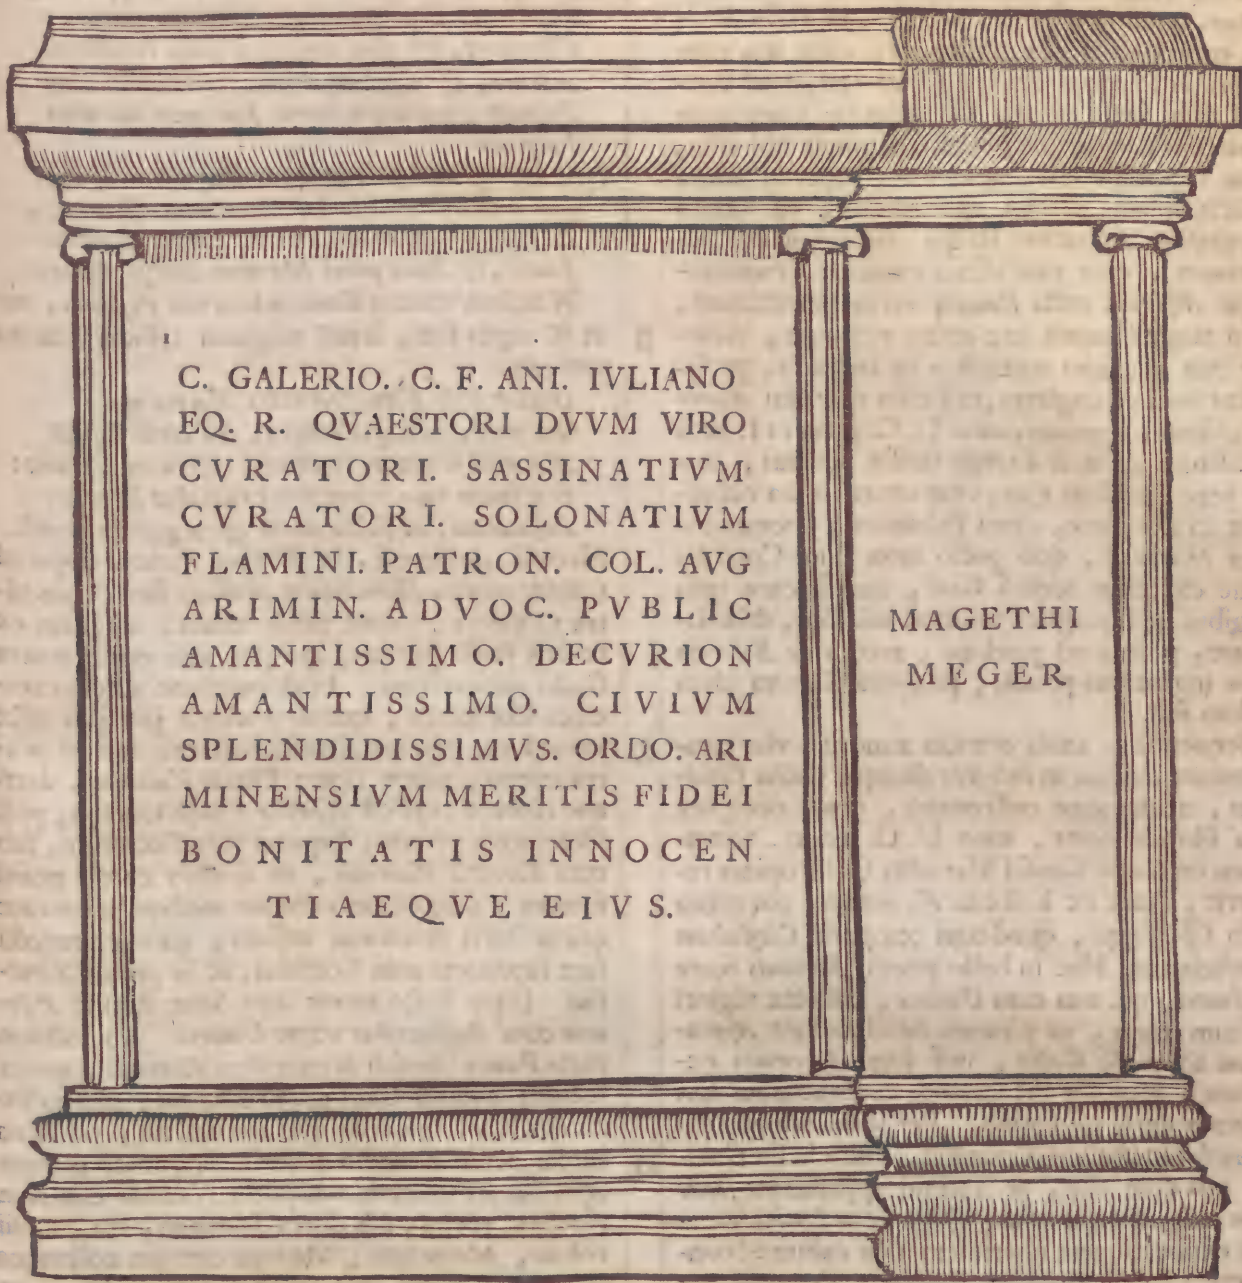 C. GALERIO. C. F. ANI. IVLIANO
EQ. R. QVAESTORI DVVM VIRO
CVRATORI. SASSINATIVM
CVRATORI. SOLONATIVM
FLAMINI. PATRON. COL. AVG
ARIMIN. ADVOC. PVBLIC
AMANTISSIMO. DECVRION
AMANTISSIMO. CIVIVM
SPLENDIDISSIMVS. ORDO. ARI
MINENSIVM MERITIS FIDEI
BONITATIS INNOCEN
TIAEQVE EIVS.
MAGETHI
MEGER